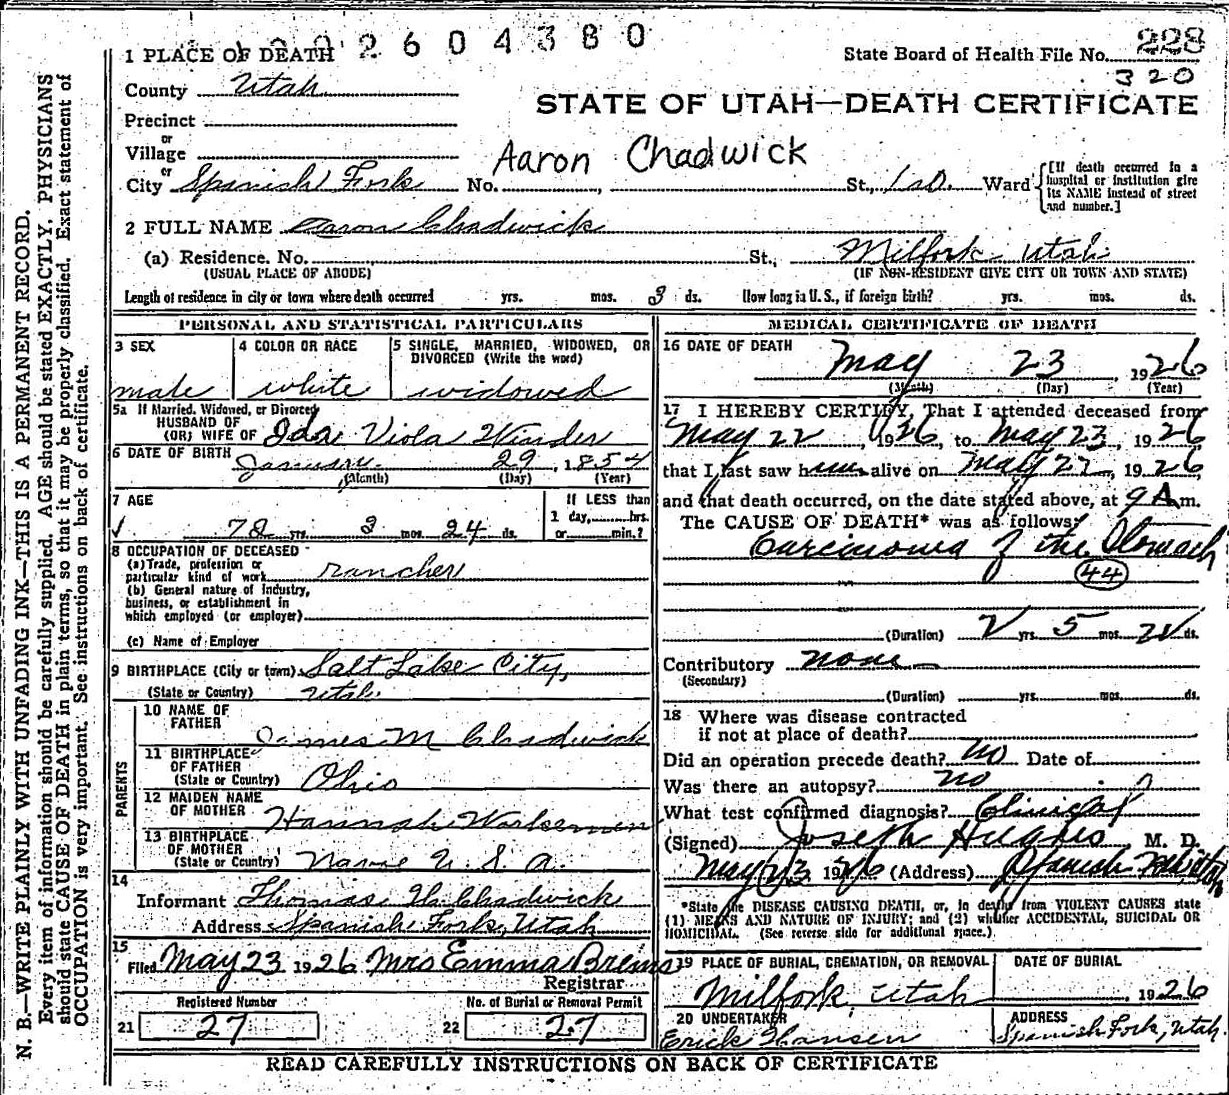 1 PLACE OF DEATH 2604380
State Board of Health File No. 228
320
County Utah
STATE OF UTAH—DEATH CERTIFICATE
Precinct
or
Village
Aaron Chadwick
or
City Spanish Fork No. , St., 1st. Ward
[If death occurred in a hospital or institution give its NAME instead of street and number.]
2 FULL NAME Aaron Chadwick
(a) Residence. No. St., Milfork Utah
(USUAL PLACE OF ABODE) (IF NON-RESIDENT GIVE CITY OR TOWN AND STATE)
Length of residence in city or town where death occurred yrs. mos. 3 ds. How long in U. S., if foreign birth? yrs. mos. ds.
PERSONAL AND STATISTICAL PARTICULARS
3 SEX 4 COLOR OR RACE 5 SINGLE, MARRIED, WIDOWED, OR
DIVORCED (Write the word)
male white widowed
5a If Married, Widowed, or Divorced
HUSBAND OF
(OR) WIFE OF Ida Viola Winder
6 DATE OF BIRTH January 29, 1854
(Month) (Day) (Year)
7 AGE IF LESS than
1 day, hrs.
78 yrs. 3 mos. 24 ds. or min.?
8 OCCUPATION OF DECEASED
(a) Trade, profession or
particular kind of work rancher
(b) General nature of Industry,
business, or establishment in
which employed (or employer)
(c) Name of Employer
9 BIRTHPLACE (City or town) Salt Lake City,
(State or Country) Utah
PARENTS
10 NAME OF
FATHER James M Chadwick
11 BIRTHPLACE
OF FATHER
(State or Country) Ohio
12 MAIDEN NAME
OF MOTHER Hannah
13 BIRTHPLACE
OF MOTHER
(State or Country) U. S. A.
14
Informant Thomas H. Chadwick
Address Spanish Fork, Utah
15
Filed May 23 1926 Mrs Emma Brems
Registrar
Registered Number No. of Burial or Removal Permit
21 27 22 27
MEDICAL CERTIFICATE OF DEATH
16 DATE OF DEATH
May 23, 1926
(Month) (Day) (Year)
17 I HEREBY CERTIFY, That I attended deceased from
May 22, 1926, to May 23, 1926
that I last saw him alive on May 22, 1926,
and that death occurred, on the date stated above, at 9 A m.
The CAUSE OF DEATH* was as follows:
Carcinoma of the Stomach
44
(Duration) yrs. 5 mos. ds.
Contributory none
(Secondary)
(Duration) yrs. mos. ds.
18 Where was disease contracted
if not at place of death?
Did an operation precede death? no Date of
Was there an autopsy? no
What test confirmed diagnosis? Clinical
(Signed) Joseph Hughes M. D.
May 23 1926 (Address) Spanish Fork, Utah
*State the DISEASE CAUSING DEATH, or, in death from VIOLENT CAUSES state
(1) MEANS AND NATURE OF INJURY; and (2) whether ACCIDENTAL, SUICIDAL OR
HOMICIDAL. (See reverse side for additional space.)
19 PLACE OF BURIAL, CREMATION, OR REMOVAL DATE OF BURIAL
Milfork, Utah , 1926
20 UNDERTAKER ADDRESS
Erick Hansen Spanish Fork, Utah
READ CAREFULLY INSTRUCTIONS ON BACK OF CERTIFICATE
N. B.—WRITE PLAINLY WITH UNFADING INK—THIS IS A PERMANENT RECORD.
Every item of information should be carefully supplied. AGE should be stated EXACTLY. PHYSICIANS
should state CAUSE OF DEATH in plain terms, so that it may be properly classified. Exact statement of
OCCUPATION is very important. See instructions on back of certificate.